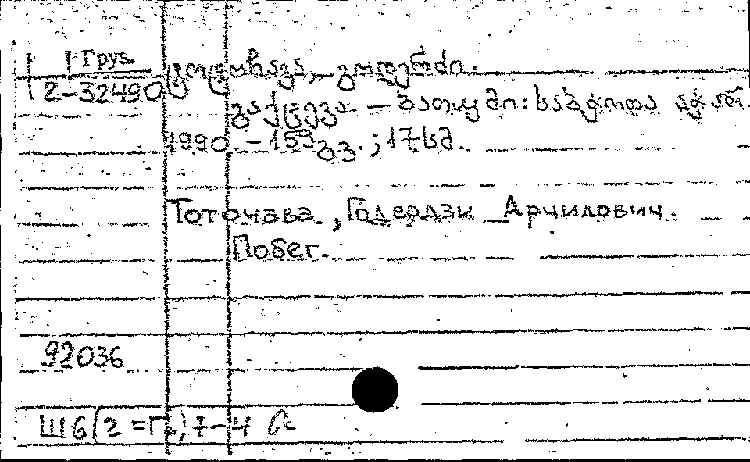 Груз.
2-32490
თოთოჩავა, გოდერძი.
გაქცევა. – ბათუმი: საბჭოთა აჭარა
1990. – 159 გვ. ; 17 სმ.
Тоточава, Годердзи Арчилович.
Побег.
92036
Ш6(2=Г.)7-4